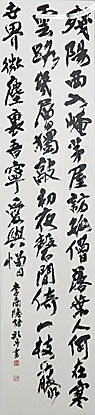 殘陽西入崦茅屋訪孤僧落葉人何在寒
雲路幾層獨敲初夜磬閒倚一枝藤
世界微塵裏吾寧愛與憎
李商隱詩